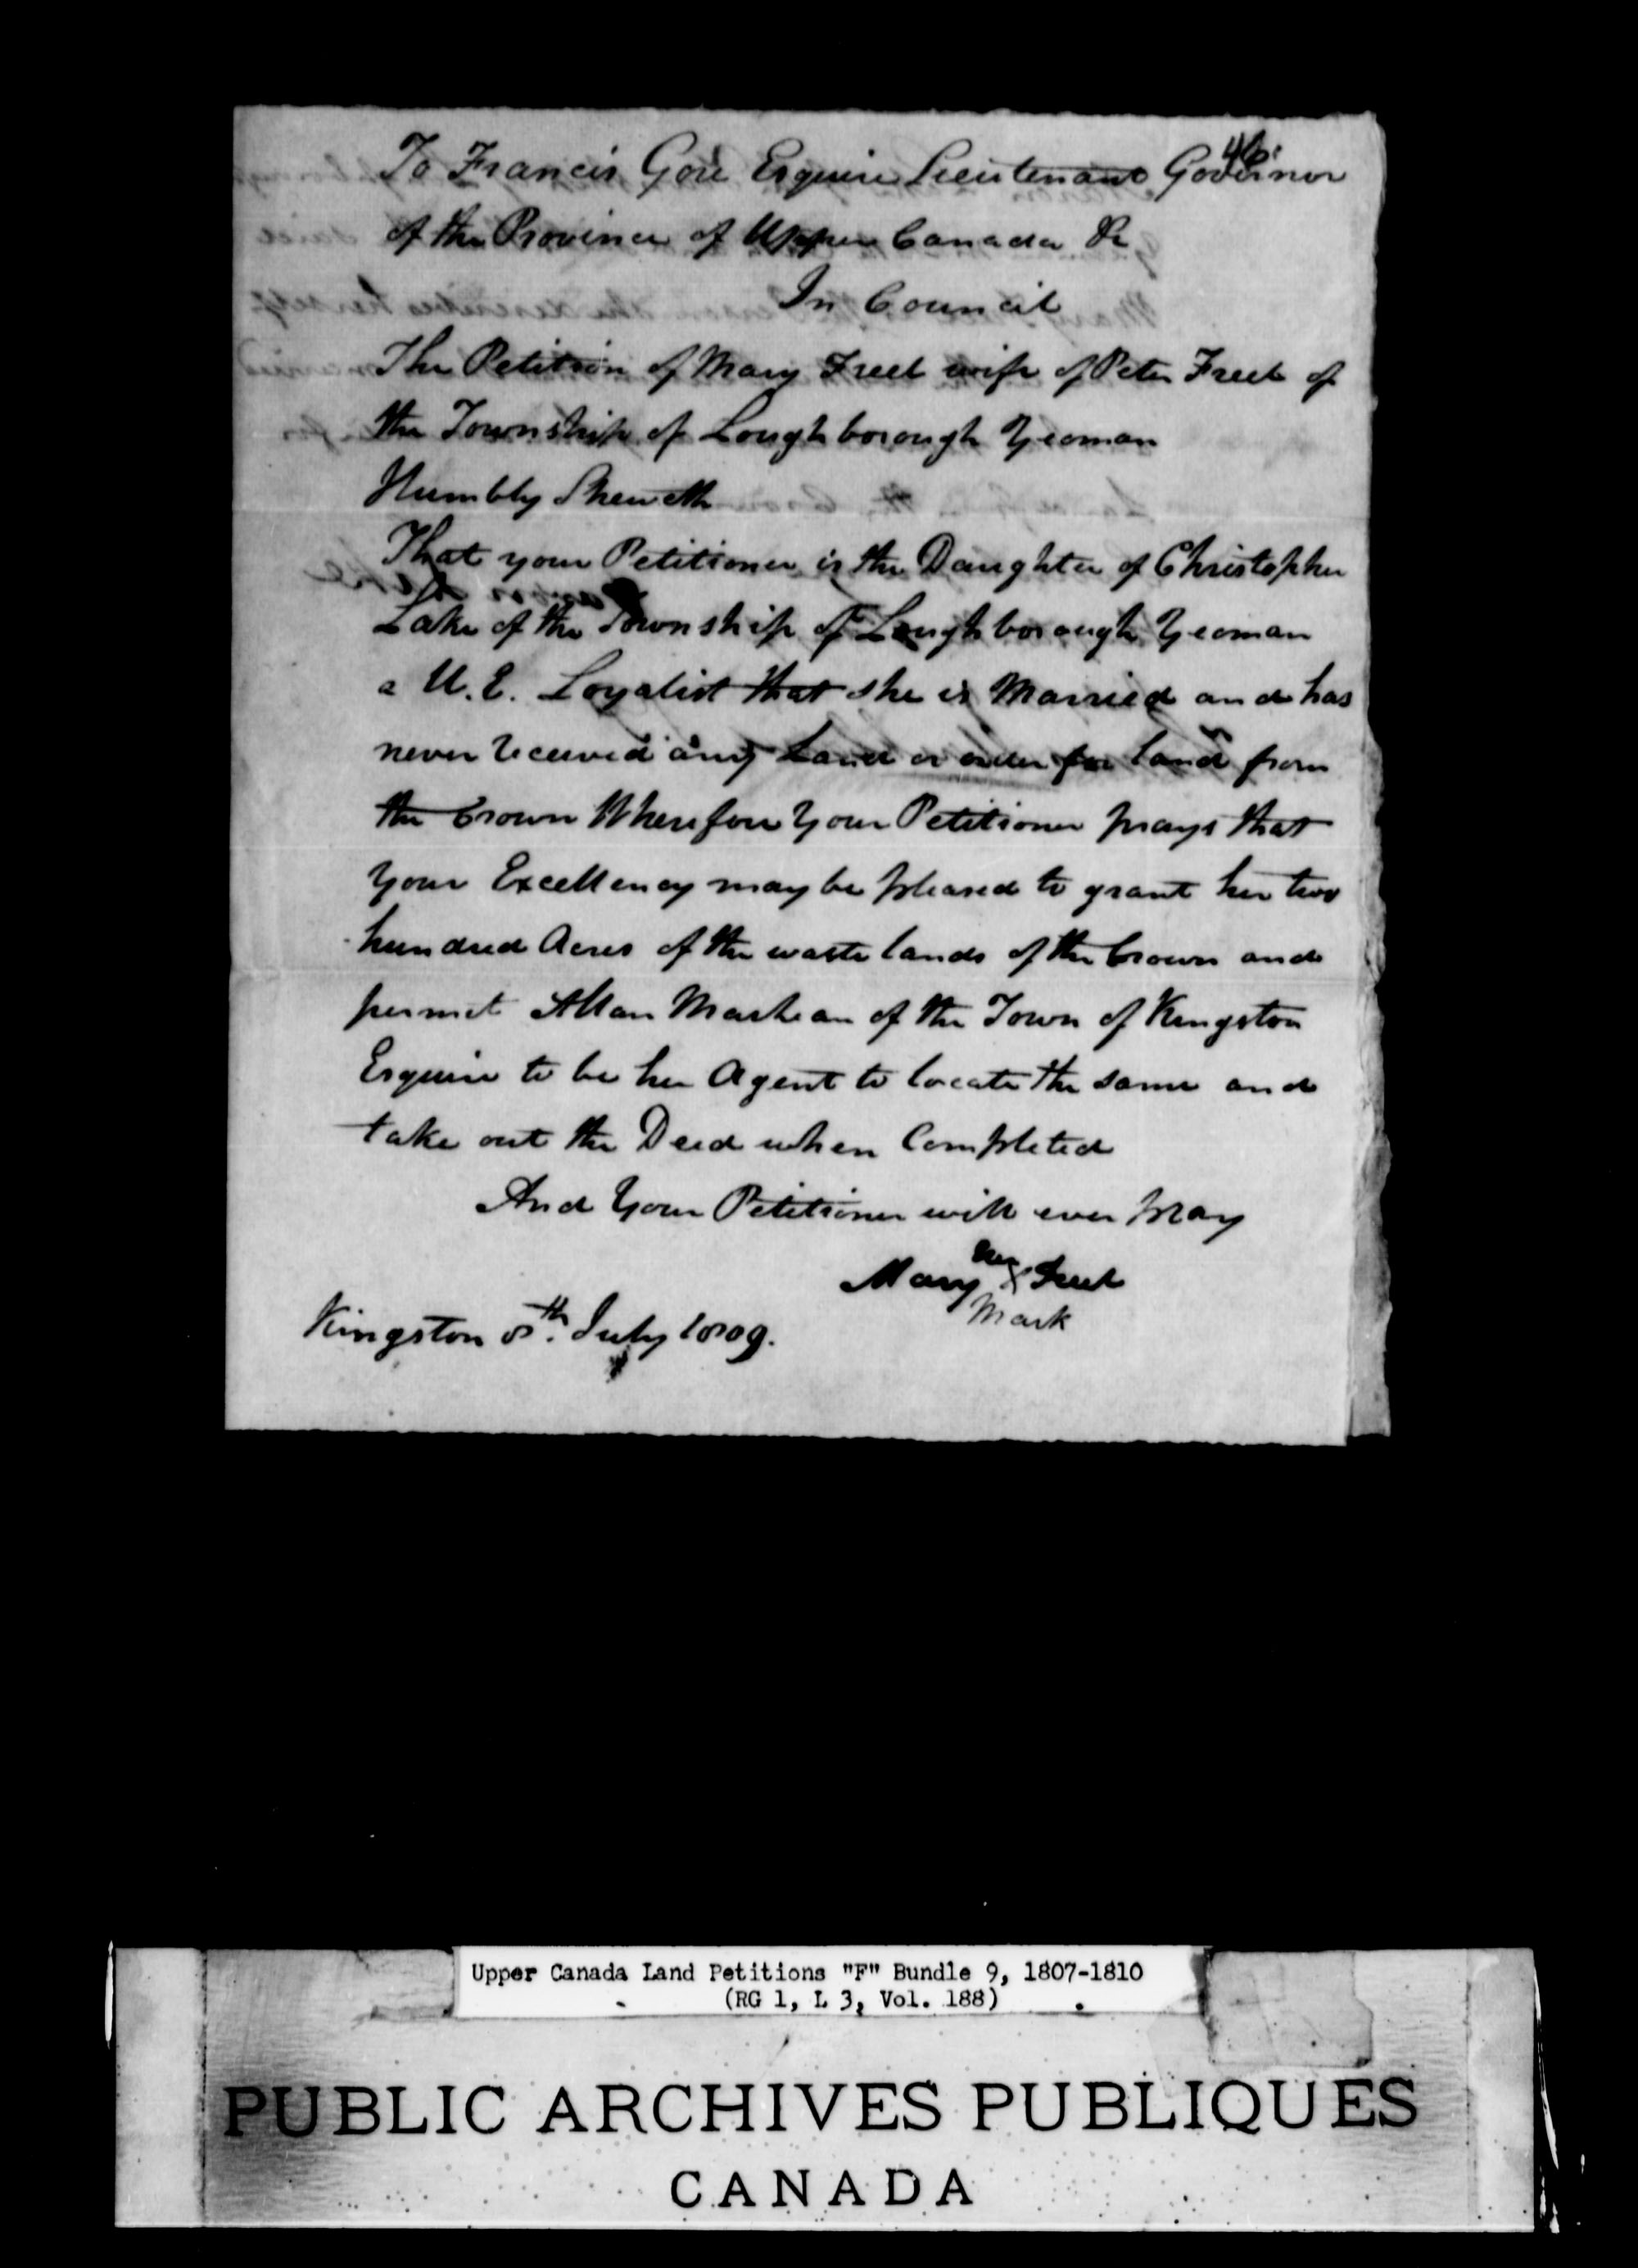 46
To Francis Gore Esquire Lieutenant Governor
of the Province of Upper Canada &c
In Council
The Petition of Mary Freel wife of Peter Freel of
the Township of Loughborough Yeoman
Humbly Sheweth
That your Petitioner is the Daughter of Christopher
Lake of the Township of Loughborough Yeoman
a U.E. Loyalist that she is Married and has
never received any Land or order for land from
the Crown Wherefore Your Petitioner prays that
Your Excellency may be pleased to grant her two
hundred Acres of the waste lands of the Crown and
permit Allan Maclean of the Town of Kingston
Esquire to be her Agent to locate the same and
take out the Deed when Completed
And Your Petitioner will ever pray
her
Mary X Freel
Mark
Kingston 8th. July 1809.
Upper Canada Land Petitions "F" Bundle 9, 1807-1810
(RG 1, L 3, Vol. 188)
PUBLIC ARCHIVES PUBLIQUES
CANADA